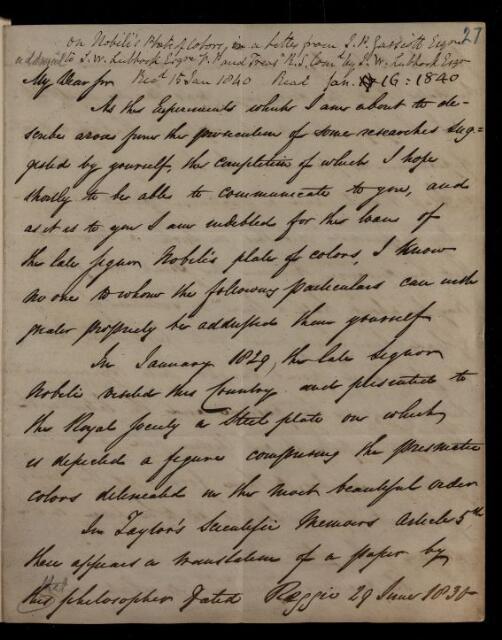 27
on Nobili's Plate of Colors, in a letter from J. P. Gassiott Esqre
addressed to J. W. Lubbock Esqre V.P. and Treas. R.S. Comd by J. W. Lubbock Esqr
My Dear Sir Recd 15 Jan 1840 Read Jan. 16: 1840
As the Experiments which I am about to de-
scribe arose from the prosecution of some researches sug-
gested by yourself, the completion of which I hope
shortly to be able to communicate to you, and
as it is to you I am indebted for the loan of
the late Signor Nobili's plate of colors, I know
no one to whom the following particulars can with
greater propriety be addressed than yourself
In January 1829, the late Signor
Nobili visited this Country and presented to
the Royal Society a Steel plate on which
is depicted a figure comprising the prismatic
colors delineated in the most beautiful order
In Taylor's Scientific Memoirs Article 5th
there appears a translation of a paper by
this philosopher dated Reggio 29 June 1830